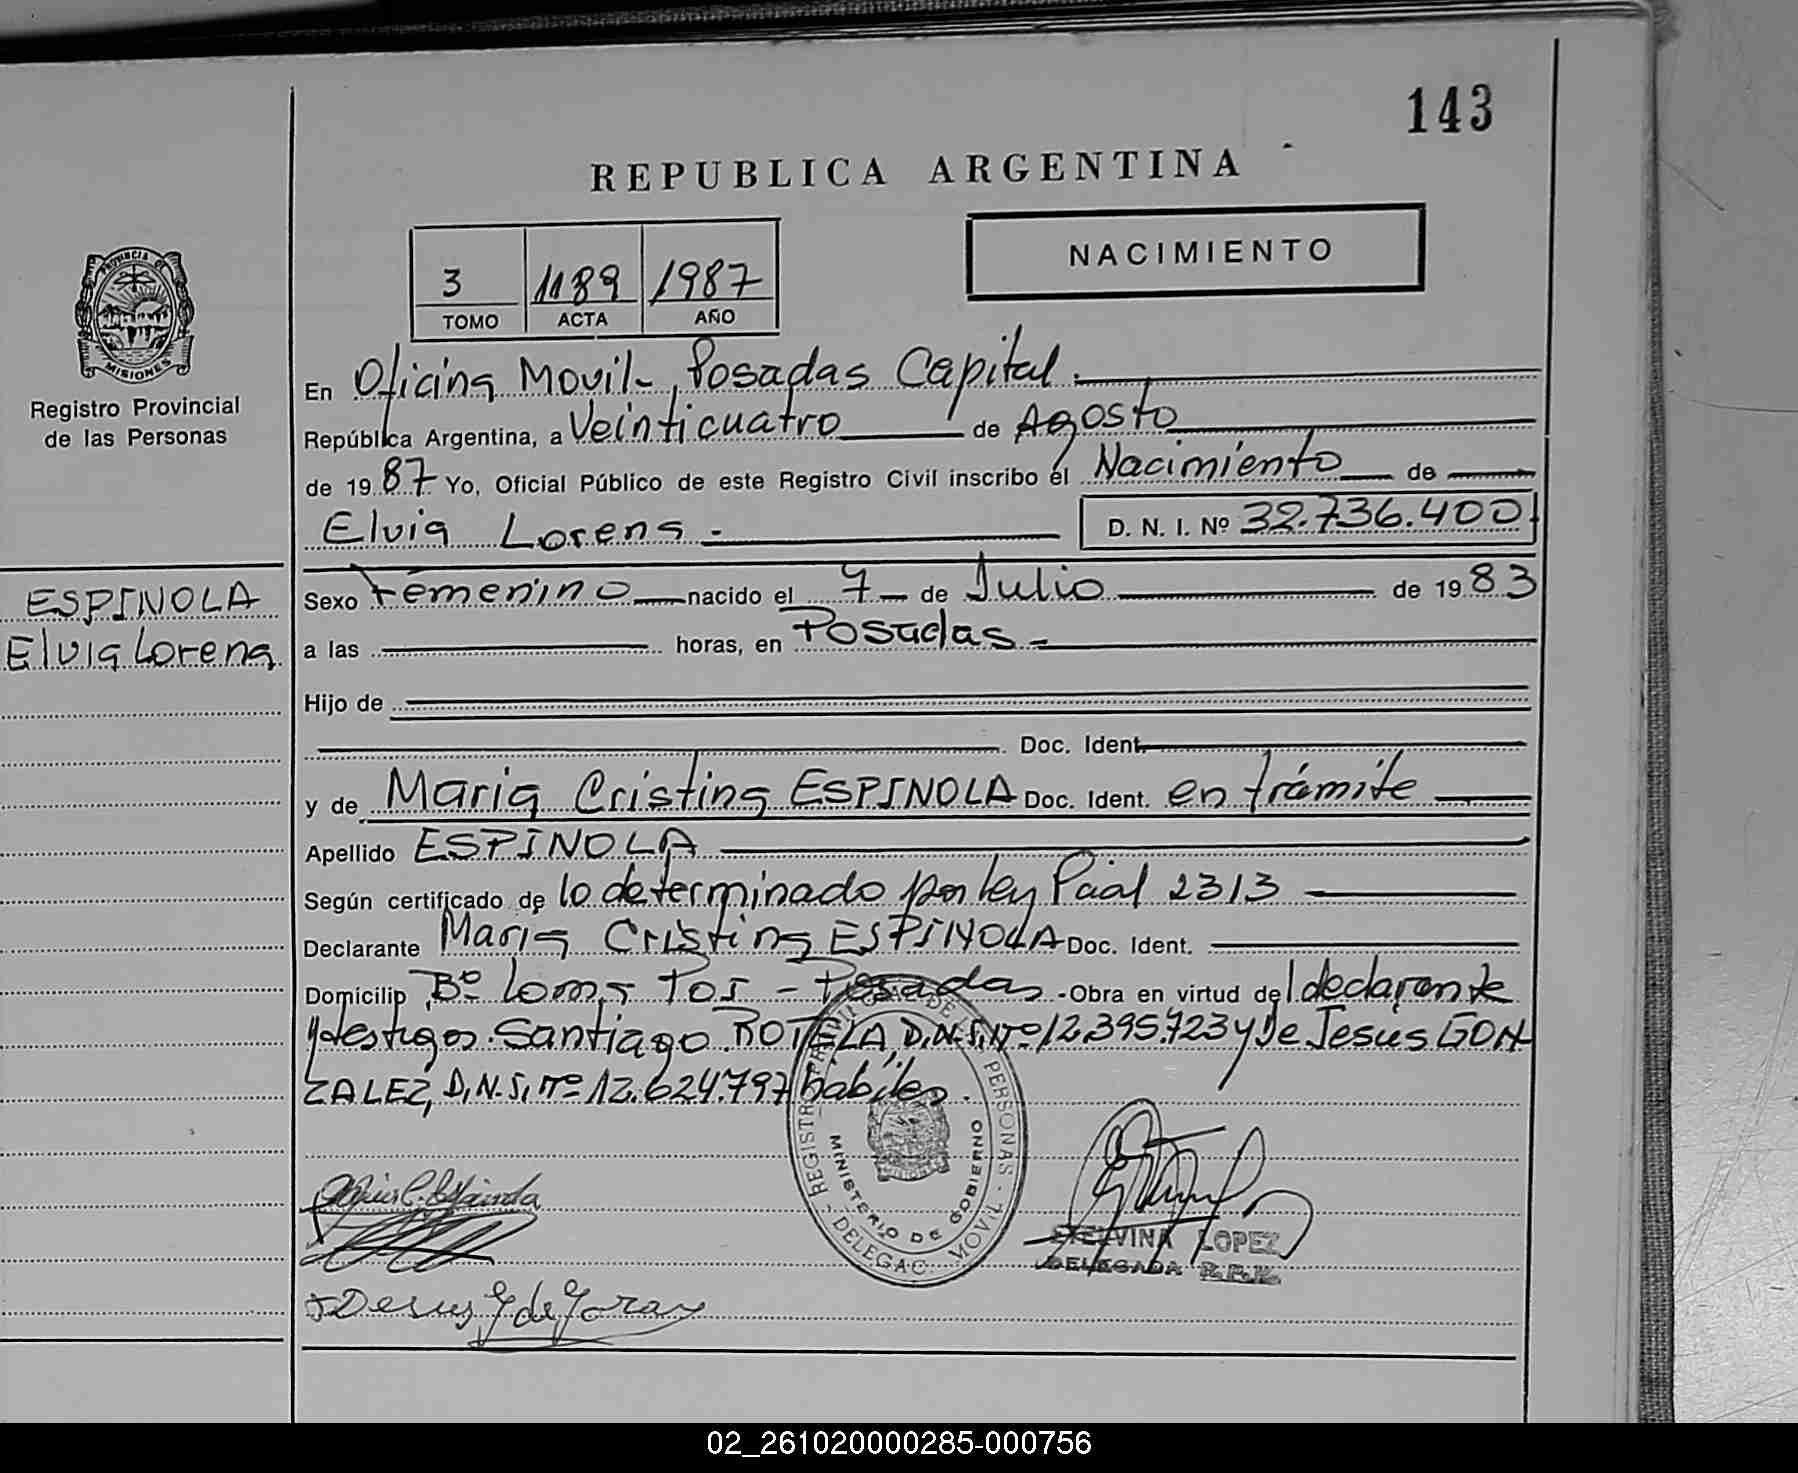 143
REPUBLICA ARGENTINA
3 1189 1987
TOMO ACTA AÑO
NACIMIENTO
PROVINCIA DE
MISIONES
Registro Provincial
de las Personas
ESPINOLA
Elvia Lorena
En Oficina Movil, Posadas Capital.
República Argentina, a Veinticuatro de Agosto
de 1987 Yo, Oficial Público de este Registro Civil inscribo el Nacimiento de
Elvia Lorena.
D. N. I. Nº 32.736.400
Sexo Femenino nacido el 7 de Julio de 1983
a las horas, en Posadas
Hijo de
Doc. Ident.
y de Maria Cristina ESPINOLA Doc. Ident. en trámite
Apellido ESPINOLA
Según certificado de lo determinado por ley Pcial 2313
Declarante Maria Cristina ESPINOLA Doc. Ident.
Domicilio Bº Loma Pos - Posadas. Obra en virtud del declarante
y testigos. Santiago ROTELA, D.N.I. Nº 12.395.723 y De Jesús GON
ZALEZ, D.N.I. Nº 12.624.797 hábiles.
REGISTRO PROVINCIAL DE LAS PERSONAS - DELEGAC. MOVIL -
MINISTERIO DE GOBIERNO
ETELVINA LOPEZ
DELEGADA R.P.P.
02_261020000285-000756